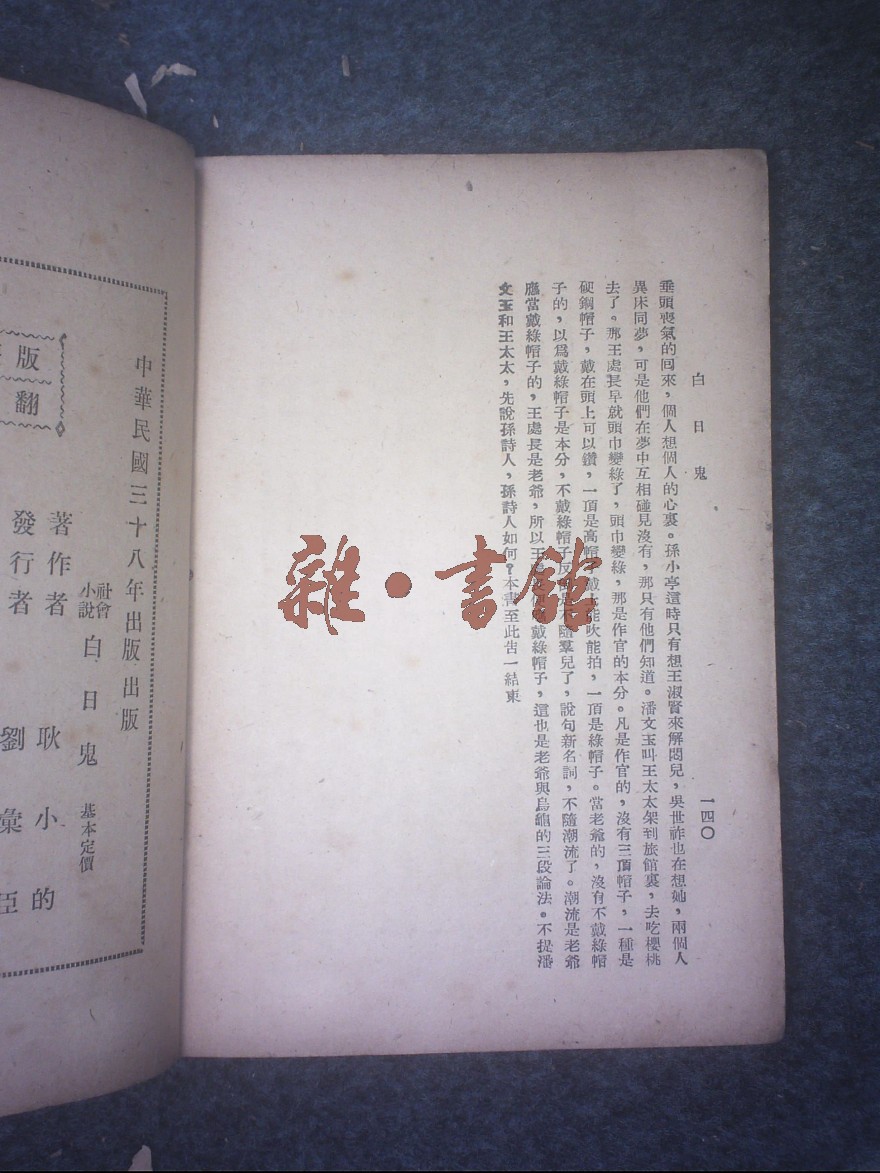 白日鬼
一四〇
垂頭喪氣的回來，個人想個人的心裏。孫小亭這時只有想王淑賢來解悶兒，吳世祚也在想她，兩個人
異床同夢，可是他們在夢中互相碰見沒有，那只有他們知道。潘文玉叫王太太架到旅館裏，去吃櫻桃
去了。那王處長早就頭巾變綠了，頭巾變綠，那是作官的本分。凡是作官的，沒有三頂帽子，一種是
硬鋼帽子，戴在頭上可以鑽，一頂是高帽子戴上能吹能拍，一頂是綠帽子。當老爺的，沒有不戴綠帽
子的，以爲戴綠帽子是本分，不戴綠帽子反倒是不隨羣兒了，說句新名詞，不隨潮流了。潮流是老爺
應當戴綠帽子的，王處長是老爺，所以王處長戴綠帽子，這也是老爺與烏龜的三段論法。不提潘
文玉和王太太，先說孫詩人，孫詩人如何？本書至此告一結束
雜・書館
中華民國三十八年出版出版
社會小說 白日鬼 基本定價
著作者 耿小的
發行者 劉彙臣
版
翻